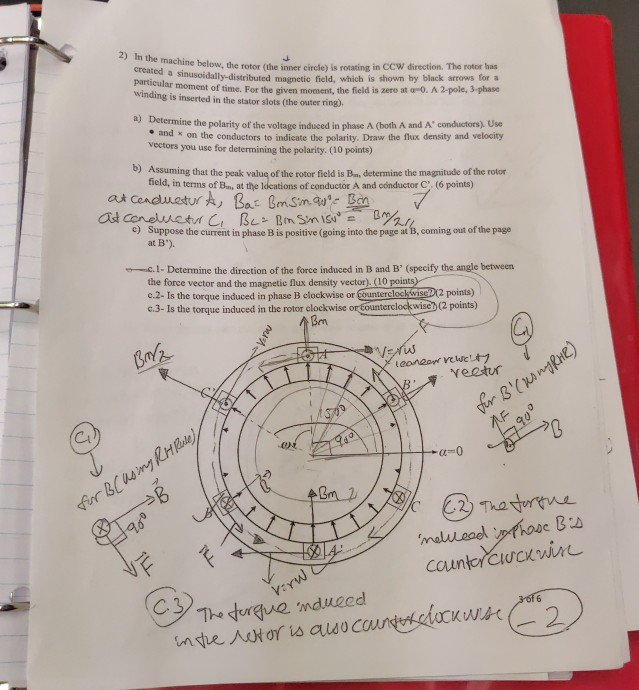 2) In the machine below, the rotor (the inner circle) is rotating in CCW direction. The rotor has
created a sinusoidally-distributed magnetic field, which is shown by black arrows for a
particular moment of time. For the given moment, the field is zero at α=0. A 2-pole, 3-phase
winding is inserted in the stator slots (the outer ring).
a) Determine the polarity of the voltage induced in phase A (both A and A' conductors). Use
• and × on the conductors to indicate the polarity. Draw the flux density and velocity
vectors you use for determining the polarity. (10 points)
b) Assuming that the peak value of the rotor field is Bm, determine the magnitude of the rotor
field, in terms of Bm, at the locations of conductor A and conductor C'. (6 points)
at conductor A, Ba= Bm Sin 90° = Bm
at conductor C, Bc= Bm Sin 150° = Bm/2
c) Suppose the current in phase B is positive (going into the page at B, coming out of the page
at B').
c.1- Determine the direction of the force induced in B and B' (specify the angle between
the force vector and the magnetic flux density vector). (10 points)
c.2- Is the torque induced in phase B clockwise or counterclockwise? (2 points)
c.3- Is the torque induced in the rotor clockwise or counterclockwise? (2 points)
Bm
F
C1
V=rw
A
V=rw
leanear velocity
vector
Bm/2
C'
B'
for B' (using RHR)
F
90°
B
150°
90°
α=0
C1
for B (using RH Rule)
B
90°
F
Bm
B
C
F
A'
V=rw
C.2) The torque
induced in phase B is
counterclockwise
C.3) The torque induced
in the rotor is also counterclockwise
3 of 6
-2